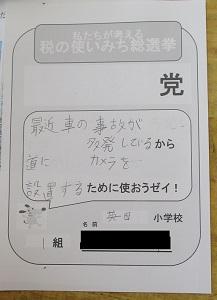 私たちが考える
税の使いみち総選挙
党
最近 車の事故が
多発しているから
道に カメラを
設置する ために使おうゼイ！
名前
小学校
組